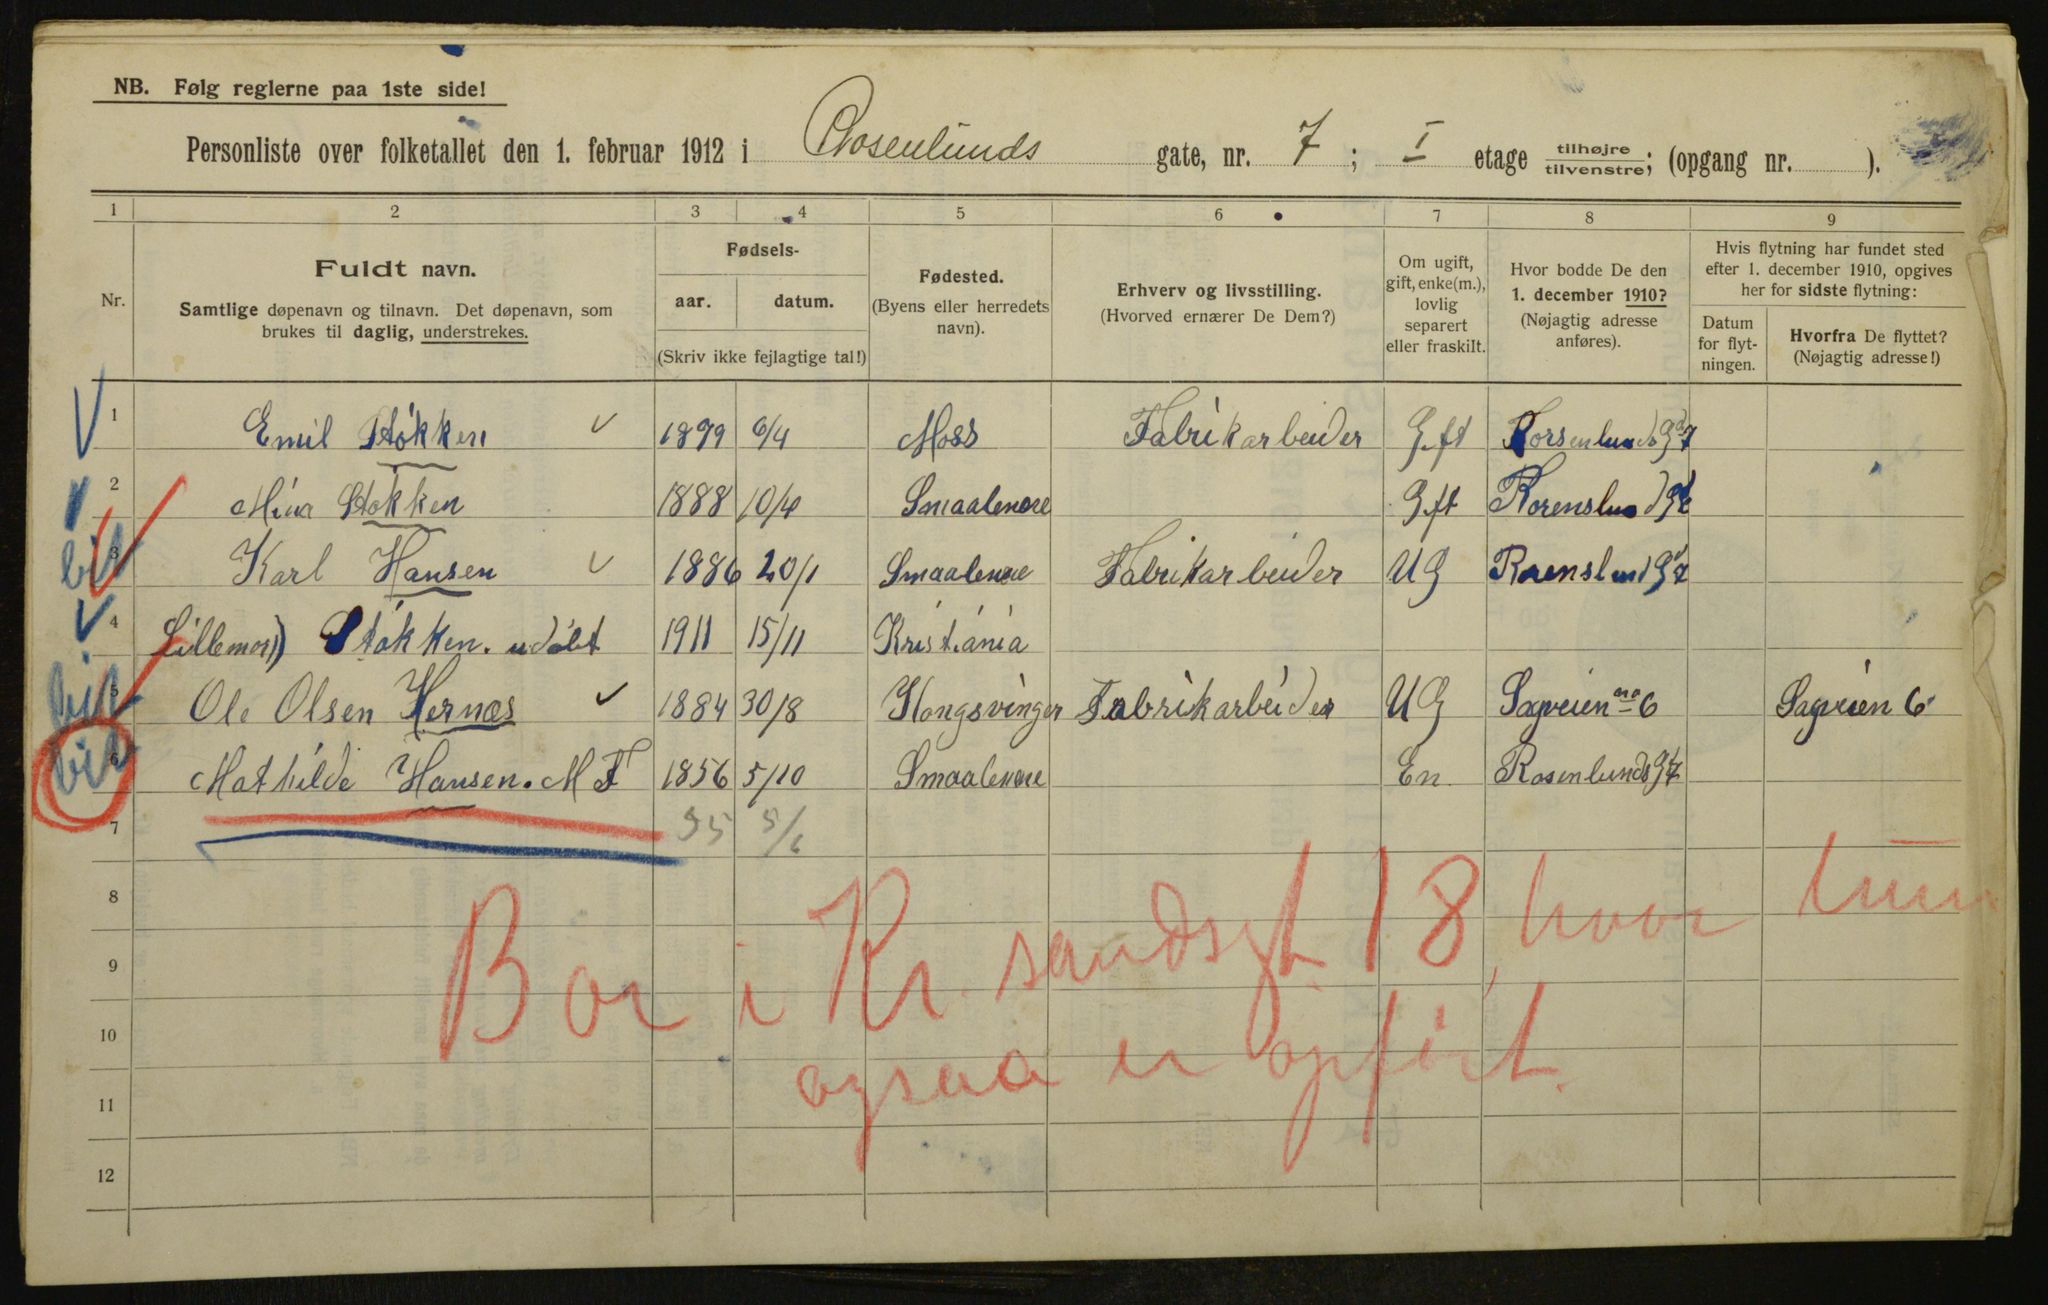 NB. Følg reglerne paa 1ste side!
Personliste over folketallet den 1. februar 1912 i Rosenlunds gate, nr. 7; I etage tilhøjre/tilvenstre; (opgang nr. ).
1 2 3 4 5 6 7 8 9
Nr.
Fuldt navn.
Samtlige døpenavn og tilnavn. Det døpenavn, som
brukes til daglig, understrekes.
Fødsels-
aar. datum.
(Skriv ikke fejlagtige tal!)
Fødested.
(Byens eller herredets
navn).
Erhverv og livsstilling.
(Hvorved ernærer De Dem?)
Om ugift,
gift, enke(m.),
lovlig
separert
eller fraskilt.
Hvor bodde De den
1. december 1910?
(Nøjagtig adresse
anføres).
Hvis flytning har fundet sted
efter 1. december 1910, opgives
her for sidste flytning:
Datum
for flyt-
ningen.
Hvorfra De flyttet?
(Nøjagtig adresse!)
1 Emil Stokken 1899 6/4 Moss Fabrikarbeider Gft Rorsenlunds Gd 7
2 Mina Stokken 1888 10/4 Smaalenene Gft Rorenslund Gt
bir 3 Karl Hansen 1886 20/1 Smaalenene Fabrikarbeider UG Rorenslund Gt 7
4 Lillemor) Stokken. udøbt 1911 15/11 Kristiania
bir 5 Ole Olsen Hernæs 1884 30/8 Kongsvinger Fabrikarbeider UG Sagveien no 6 Sagveien 6
bir 6 Mathilde Hansen. M F 1856 5/10 Smaalenene En. Rosenlunds Gt 7
7 55 5/6
8
Bor i Kr. sandsgt. 18, hvor hun
9
10
ogsaa er opført.
11
12